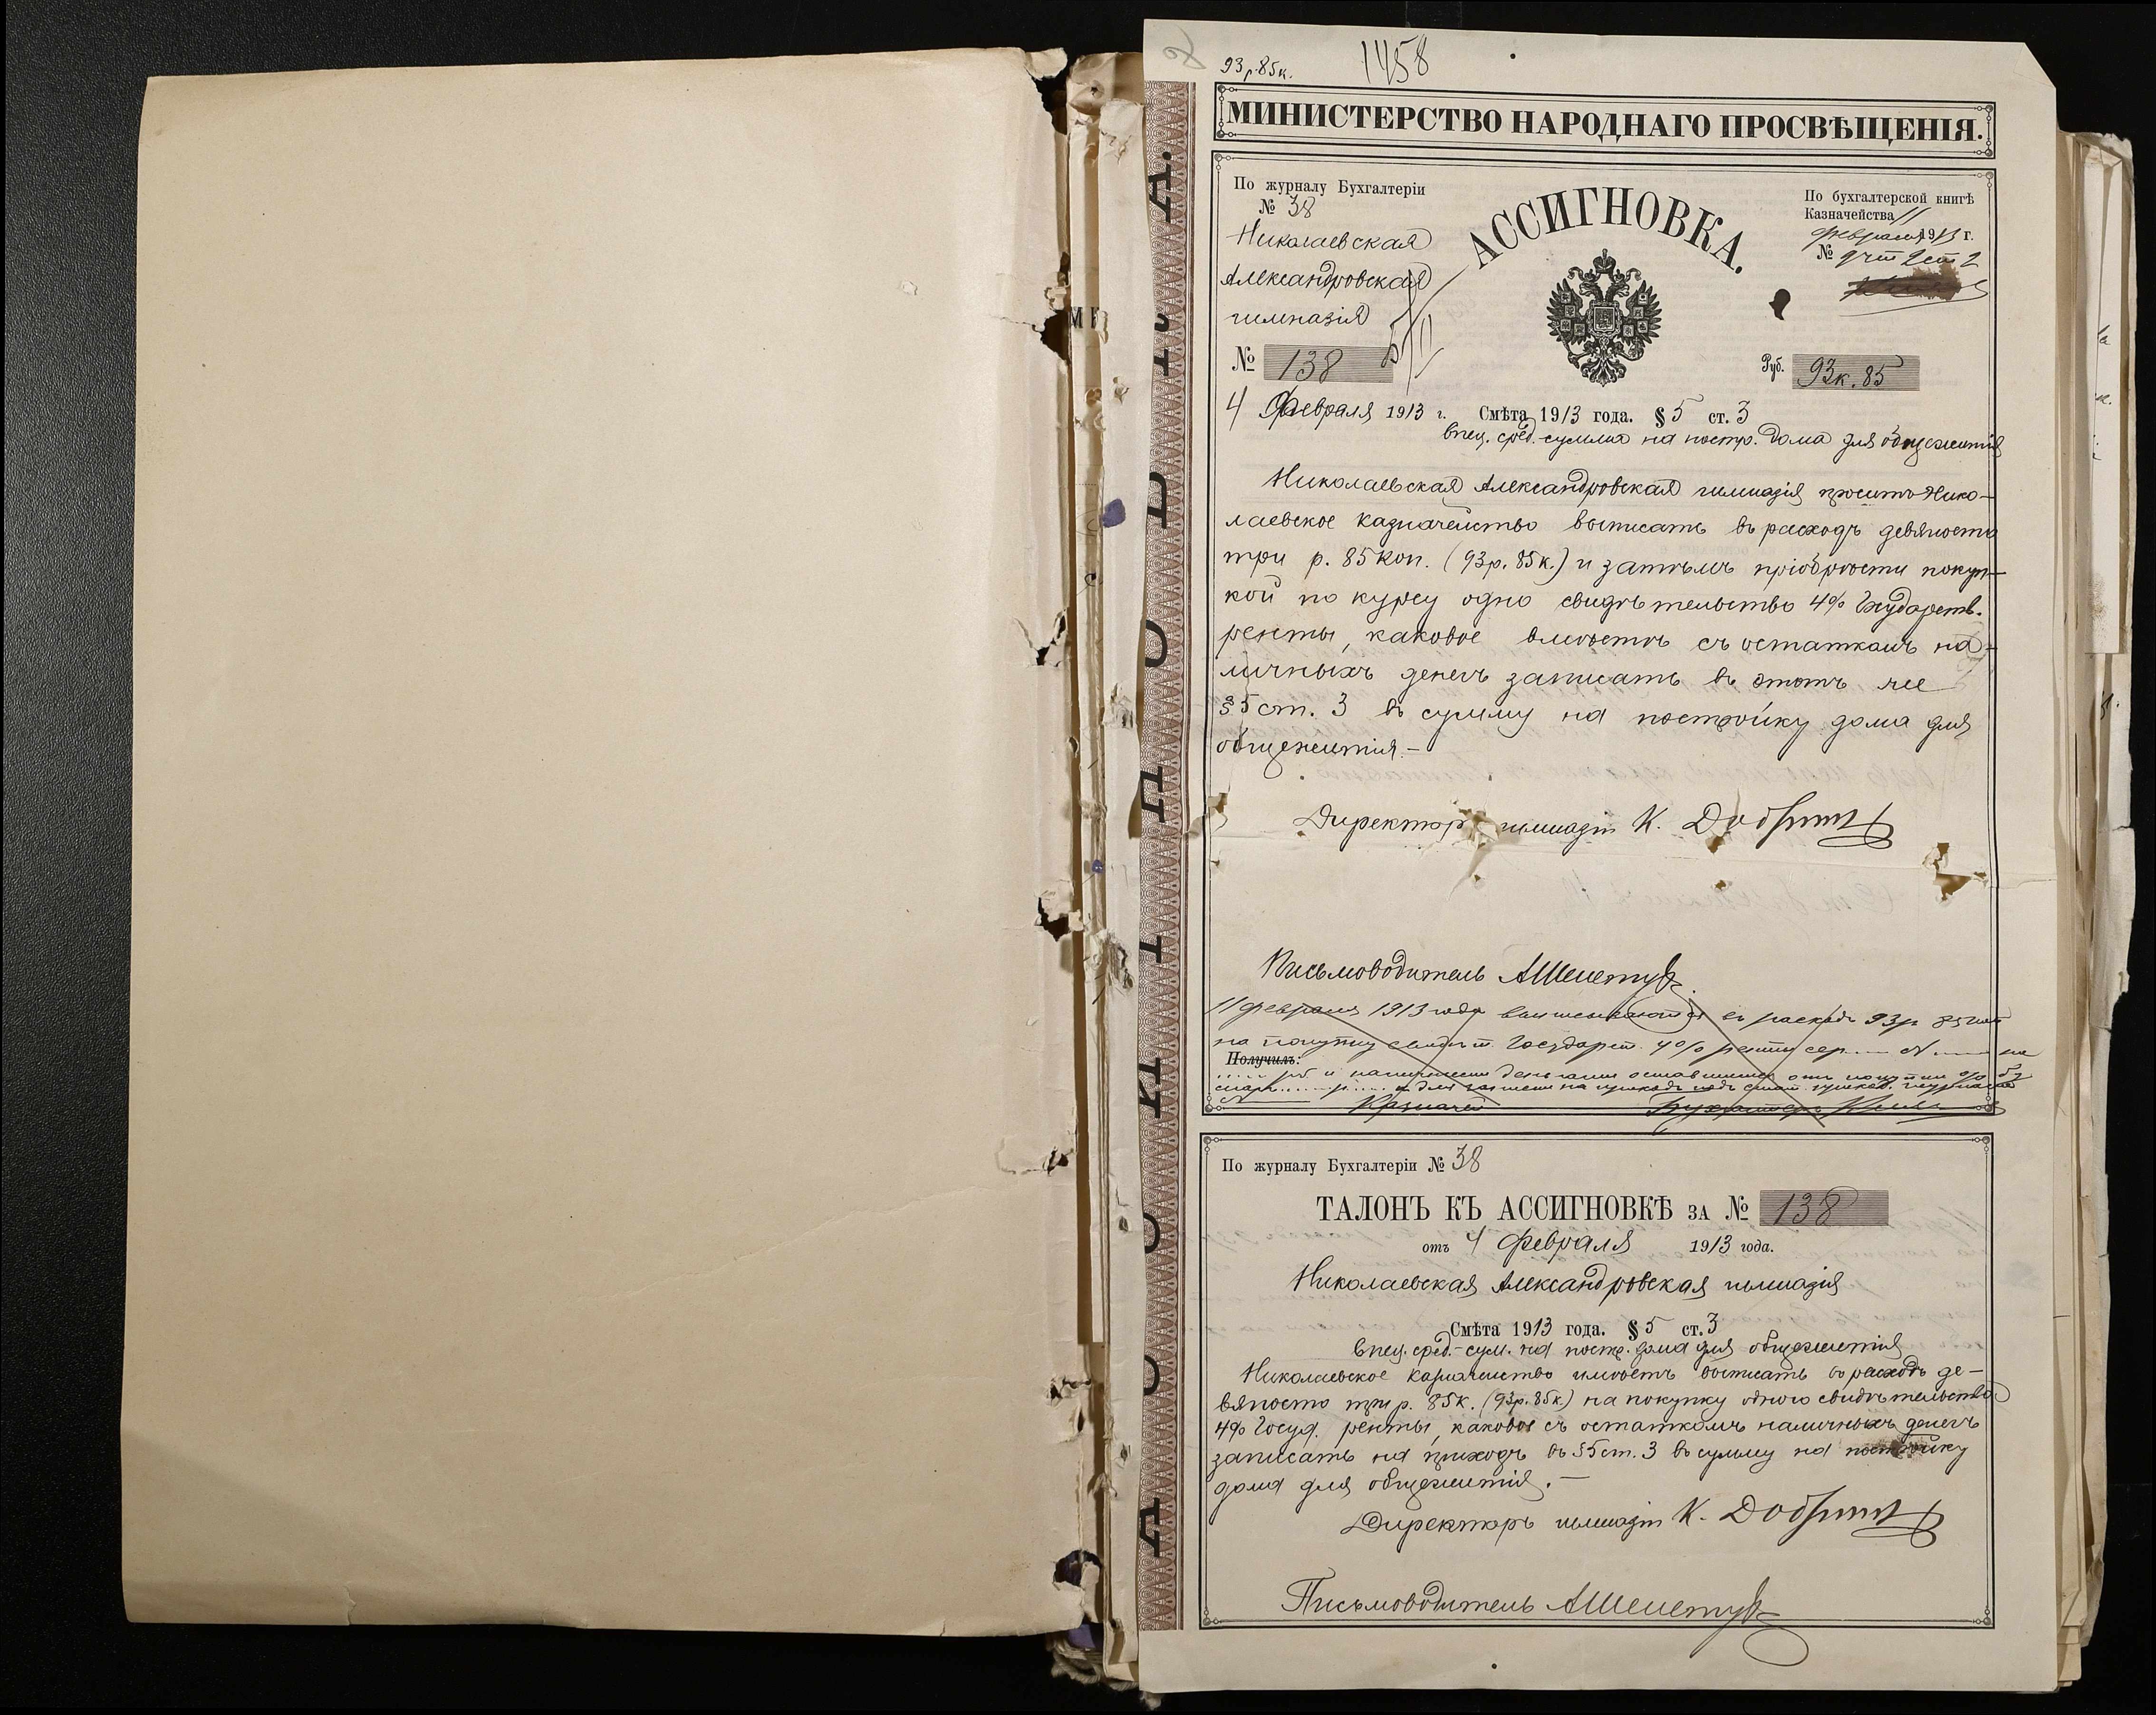 93 р. 85 к.
1458
МИНИСТЕРСТВО НАРОДНАГО ПРОСВѢЩЕНІЯ.
По журналу Бухгалтеріи
№ 38
Николаевская
Александровская
гимназія
№ 138
АССИГНОВКА.
По бухгалтерской книгѣ
Казначейства 11
февраля 1913 г.
№
Руб. 93 к. 85
4 Февраля 1913 г. Смѣта 1913 года. § 5 ст. 3
спец. сред. - сумма на постр. дома для общежитія
Николаевская Александровская гимназія проситъ Нико-
лаевское казначейство выписать въ расходъ девяносто
три р. 85 коп. (93 р. 85 к.) и затѣмъ пріобрѣсти покуп-
кой по курсу одно свидѣтельство 4% Государств.
ренты, каковое вмѣстѣ съ остаткомъ на-
личныхъ денегъ записать въ этотъ же
§ 5 ст. 3 въ сумму на постройку дома для
общежитія. -
Директоръ гимназіи К.
Письмоводитель
11 февраля 1913 года выписываются въ расходъ 93 р 85 коп
на покупку свидѣт. Государст. 4% ренты сер. N на
Получилъ:
Казначей Бухгалтеръ
По журналу Бухгалтеріи № 38
ТАЛОНЪ КЪ АССИГНОВКѢ ЗА № 138
отъ 4 февраля 1913 года.
Николаевская Александровская гимназія
Смѣта 1913 года. § 5 ст. 3
спец. сред. - сум. на постр. дома для общежитія
Николаевское казначейство имѣетъ выписать въ расходъ де-
вяносто три р. 85 к. (93 р. 85 к.) на покупку одного свидѣтельства
4% Госуд. ренты, каковое съ остаткомъ наличныхъ денегъ
записать на приходъ въ § 5 ст. 3 въ сумму на постройку
дома для общежитія. -
Директоръ гимназіи К.
Письмоводитель